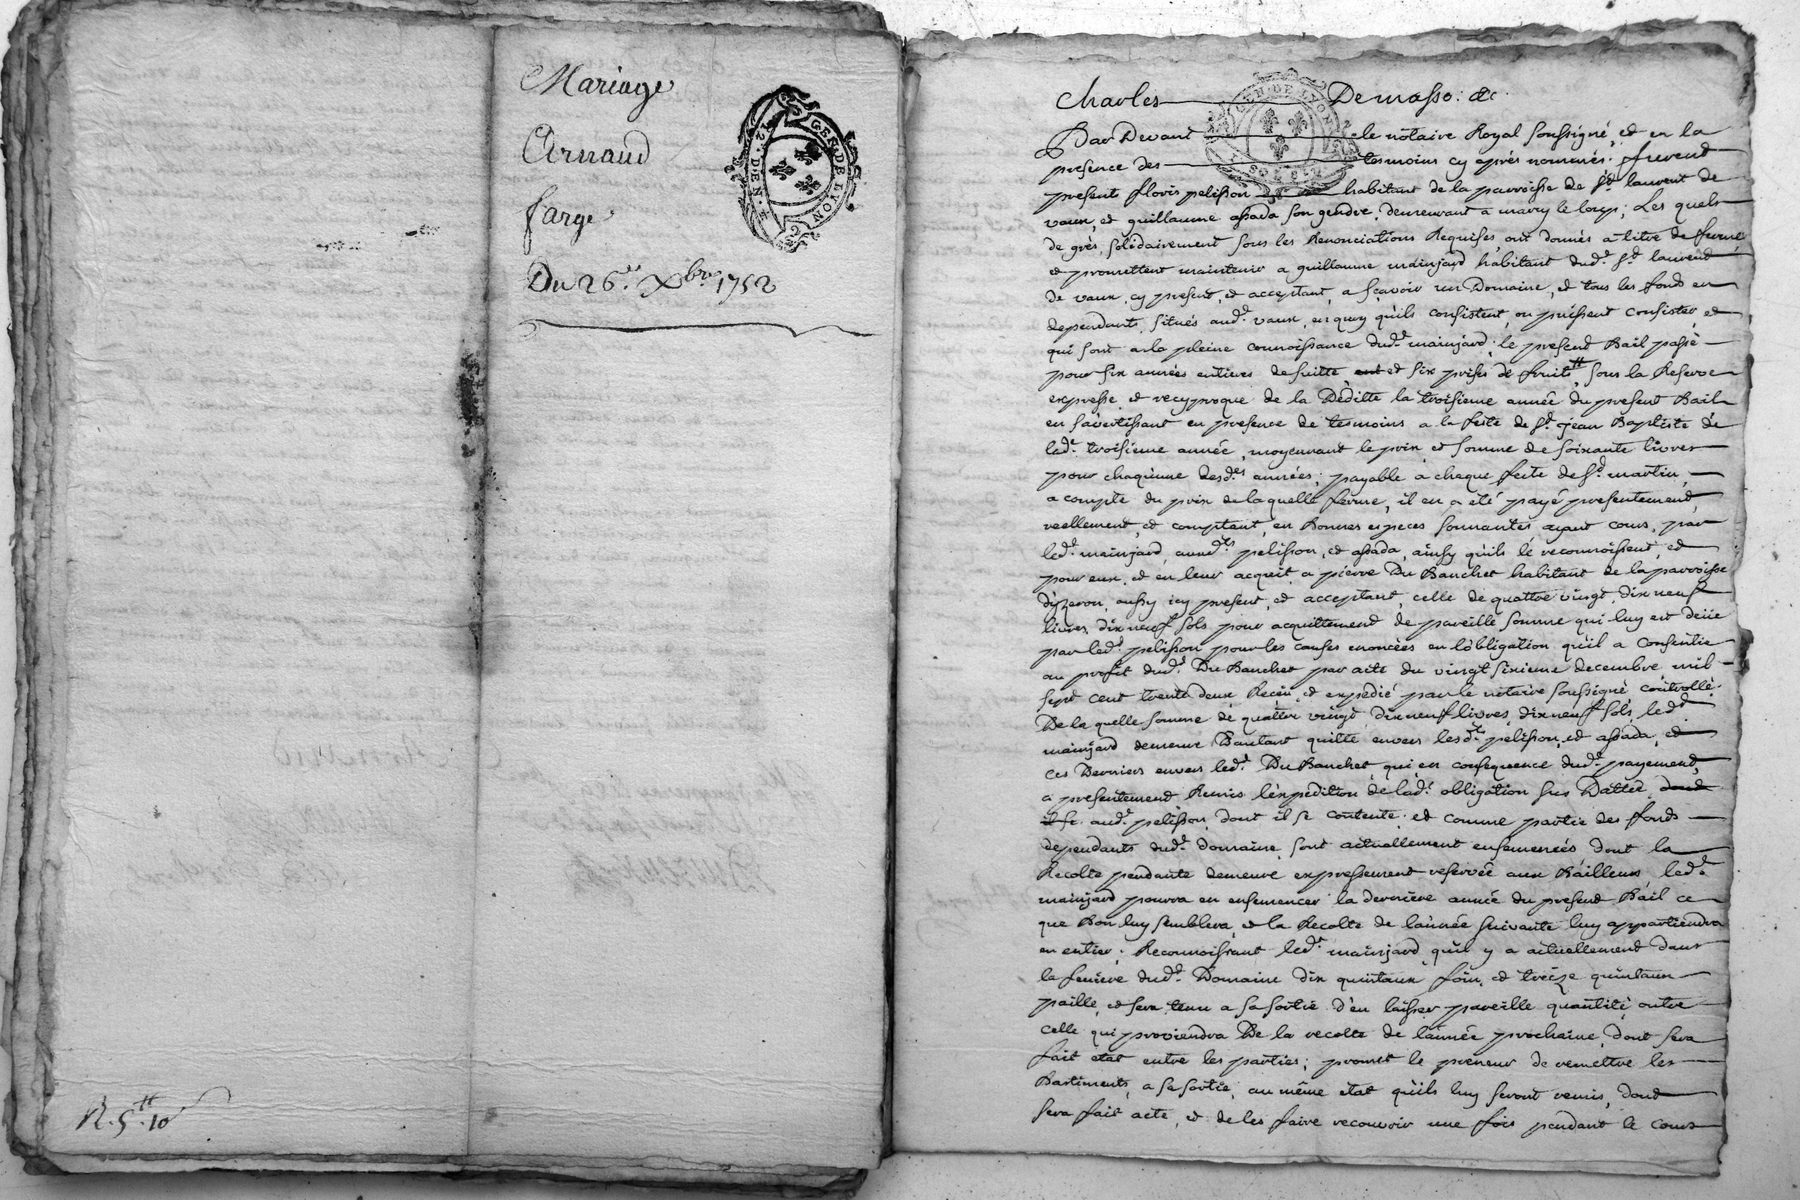 Mariage
Arnaud
farge
Du 26.e Xbre 1752
GEN. DE LYON
R. 5tt. 10
Charles Demasso: &c.
GEN. DE LYON
Par Devant le notaire Royal soussigné, et en la
presence des tesmoins cy aprés nommés. furent
present floris pelisson habitant de la parroisse de st laurent de
vaux, et guillaume assada son gendre, demeurant a marcy le loup; Les quels
de gres, solidairement sous les Renonciations Requises, ont donnés a titre de ferme
et promettent maintenir a guillaume mainjard habitant dud.t st. laurent
de vaux, cy present, et acceptant, a sçavoir un Domaine, et tous les fonds en
dependants, situés aud.t vaux, en quoy qu'ils consistent, ou puissent consister, et
qui sont a la pleine connoissance dud.t mainjard; le present Bail passé
pour six années entieres de suitte, et six prises de fruits, sous la Reserve
expresse et recyproque de la Deditte la troisieme année du present Bail
en s'avertissant en presence de tesmoins a la feste de st. jean Baptiste de
lad.e troisieme année, moyennant le prix et somme de soixante livres
pour chaqu'une desd.es années; payable a cheque feste de st. martin,
a compte du prix de laquelle ferme, il en a eté payé presentement,
reellement, et comptant, en Bonnes especes sonnantes ayant cours, par
led.t mainjard, auxd.ts pelisson, et assada, ainsy qu'ils le reconnoissent, et
pour eux, et en leur acquit, a pierre Du Banchet habitant de la parroisse
d'yzeron, aussy icy present, et acceptant, celle de quattre vingt dix neuf
livres, dix neuf sols pour acquittement de pareille somme qui luy est deüe
par led.t pelisson pour les causes enoncées en l'obligation qu'il a Consentie
au profit dud.t Du Banchet par acte du vingt sixieme decembre mil
sept cent trente deux Reçeu, et expedié par le notaire soussigné côntrollé.
De la quelle somme de quattre vingt dix neuf livres, dix neuf sols, led.t
mainjard demeure D'autant quitte envers lesd.ts pelisson, et assada, et
ces Derniers envers led.t Du Banchet qui en consequence dud.t payement,
a presentement Remis l'expedition de lad.e obligation sus Dattée,
aud.t pelisson, dont il se contente; et comme partie des fonds
dependants dud.t domaine, sont actuellement ensemencés dont la
Recolte pendante demeure expressement reservée aux Bailleurs, led.t
mainjard pourra en ensemencer la derniere année du present Bail ce
que Bon luy semblera, et la Recolte de l'année suivante luy appartiendra
en entier; Reconnoissant led.t mainjard, qu'il y a actuellement dans
la feniere dud.t Domaine dix quintaux foin, et treize quintaux
paille, et sera tenu a sa sortie d'en laisser pareille quantité, outre
celle qui proviendra De la recolte de l'année prochaine, dont sera
fait etat entre les parties; promet le preneur de remettre les
Bastiments, a sa sortie, au même etat qu'ils luy seront remis, dont
sera fait acte, et de les faire recouvrir une fois pendant le cours